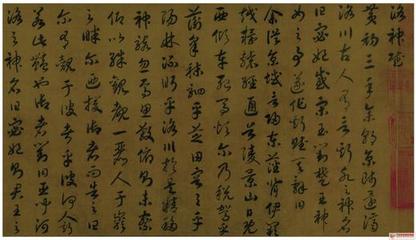 洛神賦
黄初三年余朝京師還濟
洛川古人有言斯水之神名
曰宓妃感宋玉對楚王神
女之事遂作斯賦其辭曰
余從京域言歸東藩背伊闕
越轘轅經通谷陵景山日既
西傾車殆馬煩尔乃税駕乎
蘅皋秣駟乎芝田容與乎
陽林流眄乎洛川於是精移
神駭忽焉思散俯則未察
仰以殊觀覩一麗人于巖
之畔尔迺援御者而告之曰
尔有覿于彼者乎彼何人斯
若此艷也御者對曰臣聞河
洛之神名曰宓妃則君王之